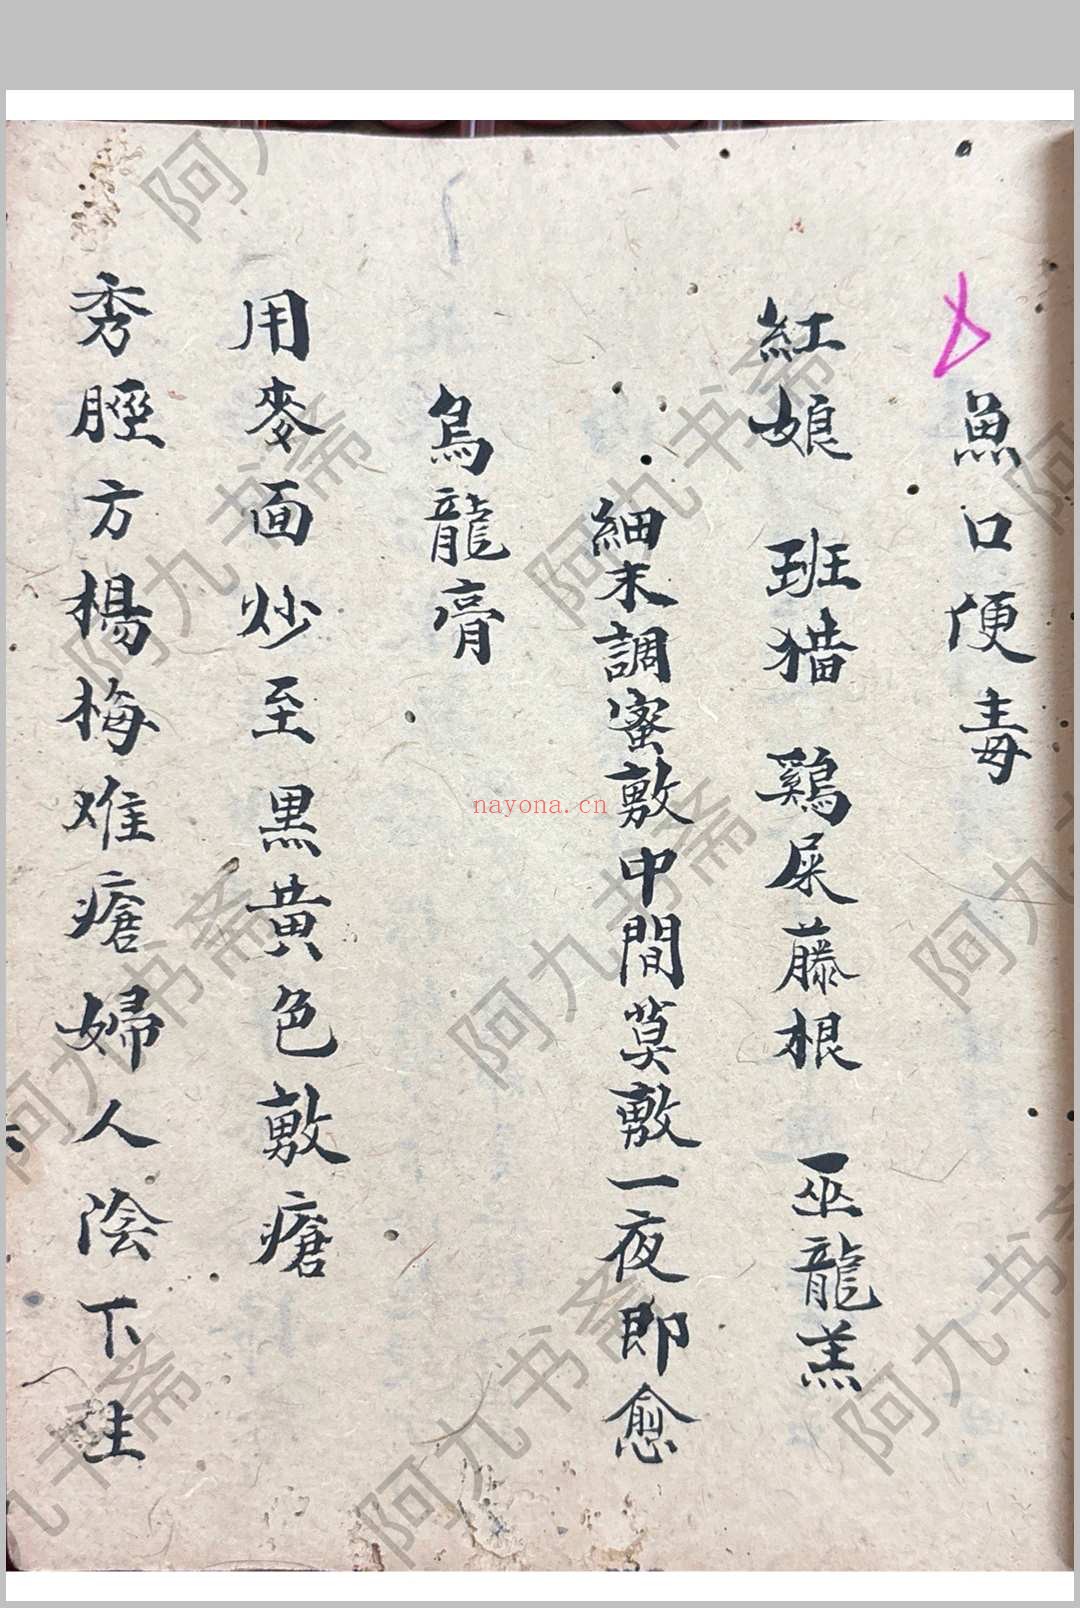 魚口便毒
紅娘 班猫 鷄屎藤根 巫龍羔
細末調蜜敷中間莫敷一夜即愈
烏龍膏
用麥面炒至黒黄色敷瘡
秀脛方楊梅难瘡婦人陰下生
nayona.cn
阿九书斋